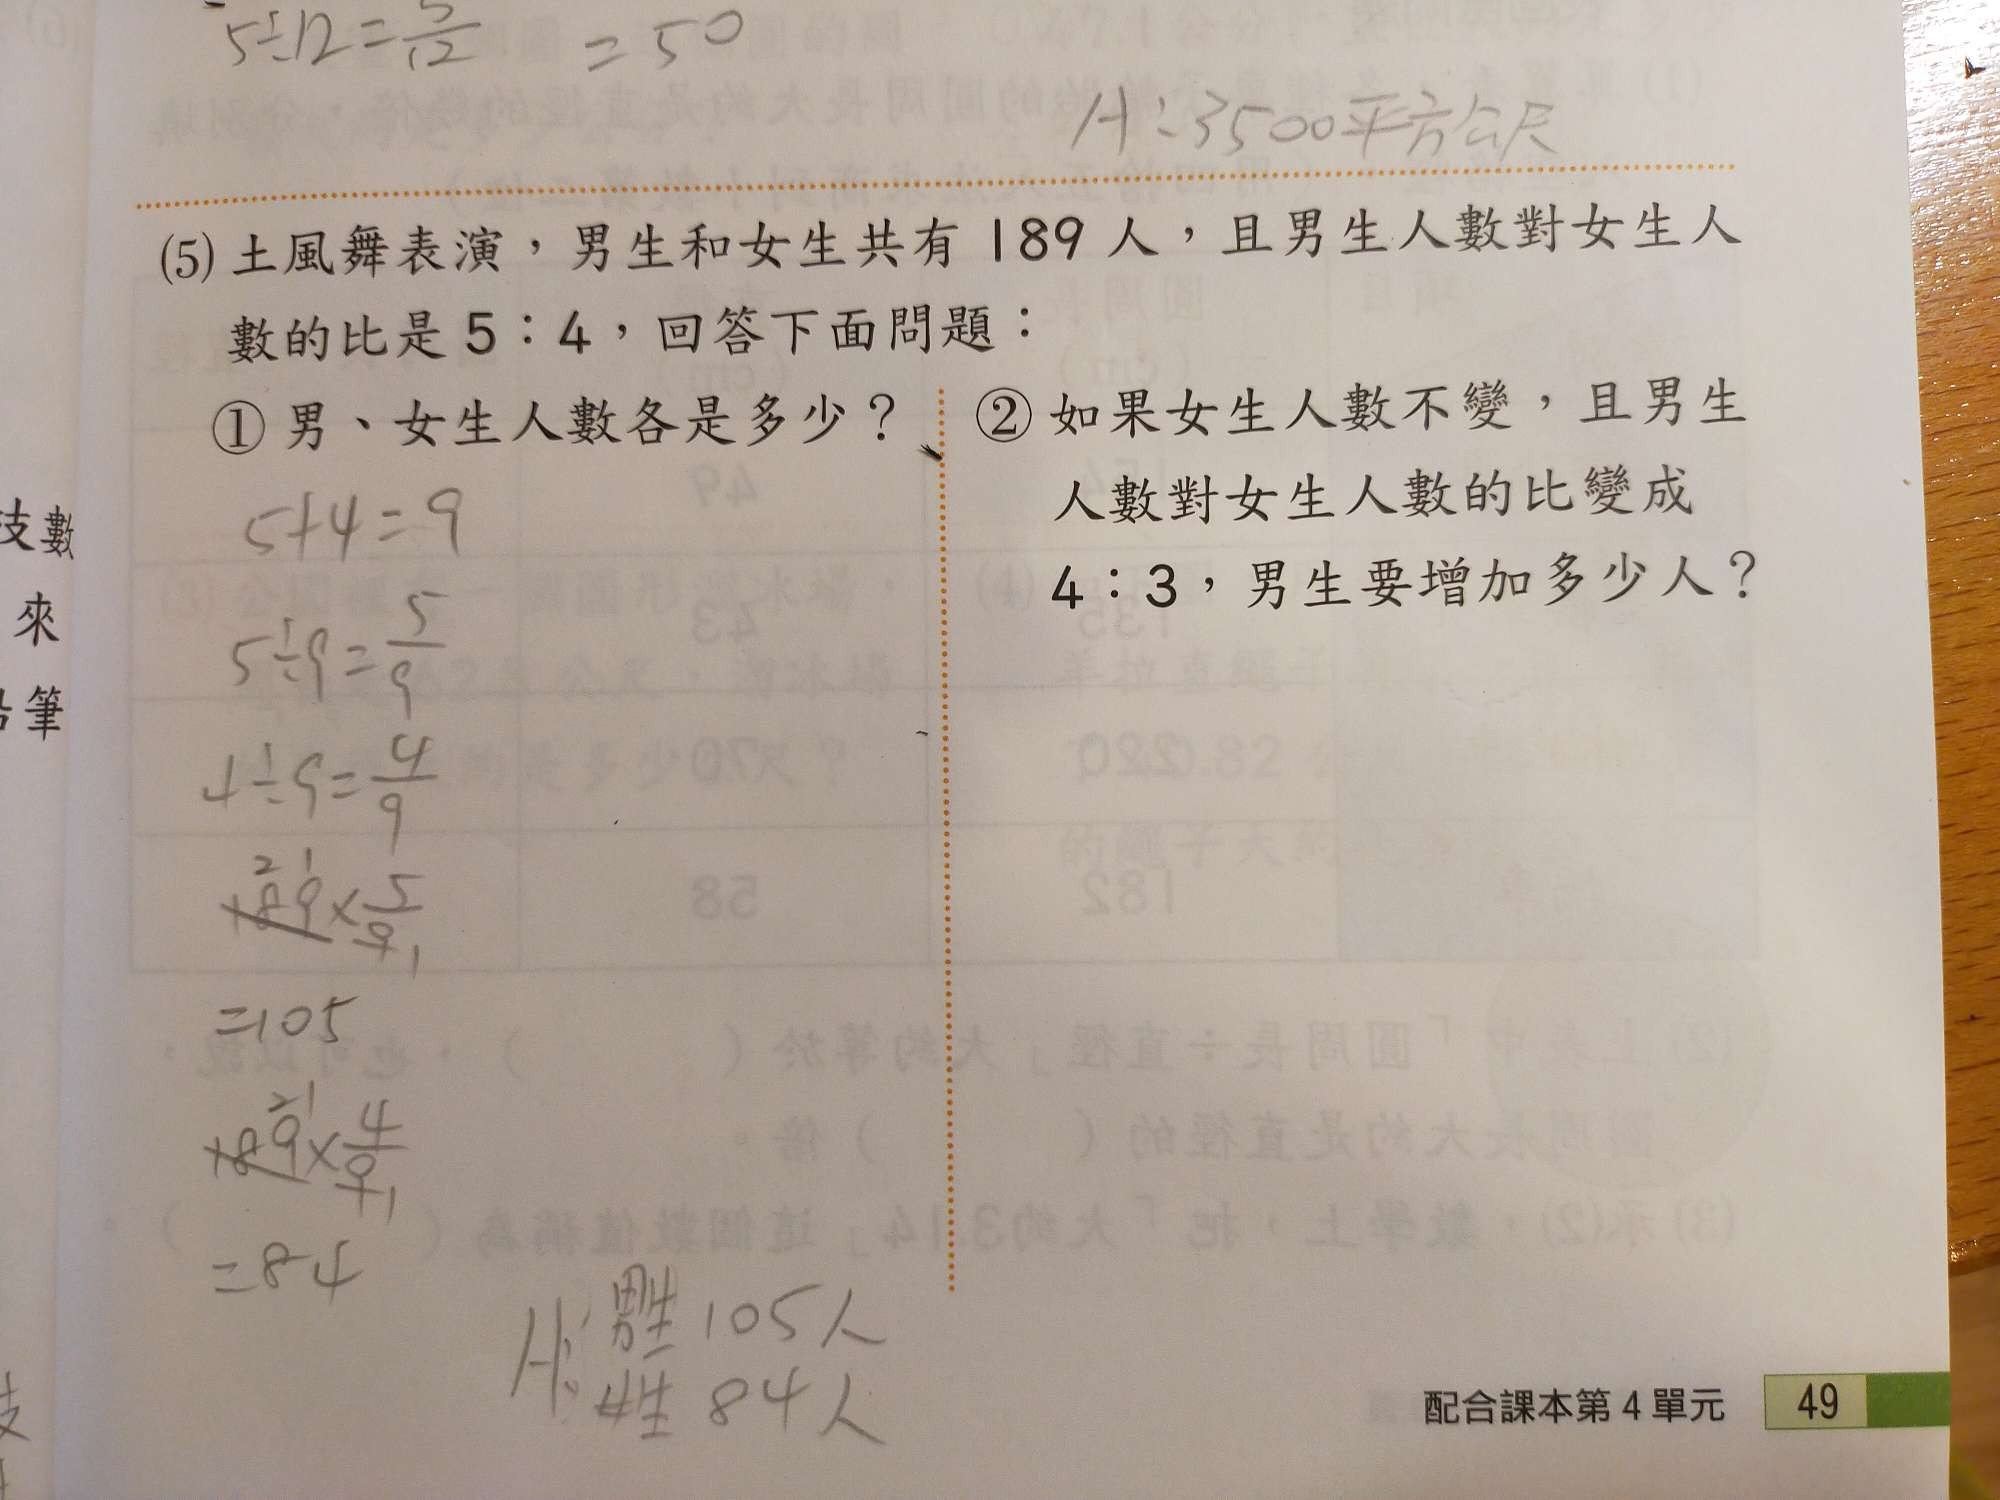 5÷12=5/12 =50
A:3500平方公尺
(5)土風舞表演，男生和女生共有 189 人，且男生人數對女生人
數的比是 5：4，回答下面問題：
① 男、女生人數各是多少？
5+4=9
5÷9=5/9
4÷9=4/9
189×5/9
=105
189×4/9
=84
A:男生 105人
女生 84人
② 如果女生人數不變，且男生
人數對女生人數的比變成
4：3，男生要增加多少人？
數
來
筆
配合課本第 4 單元 49